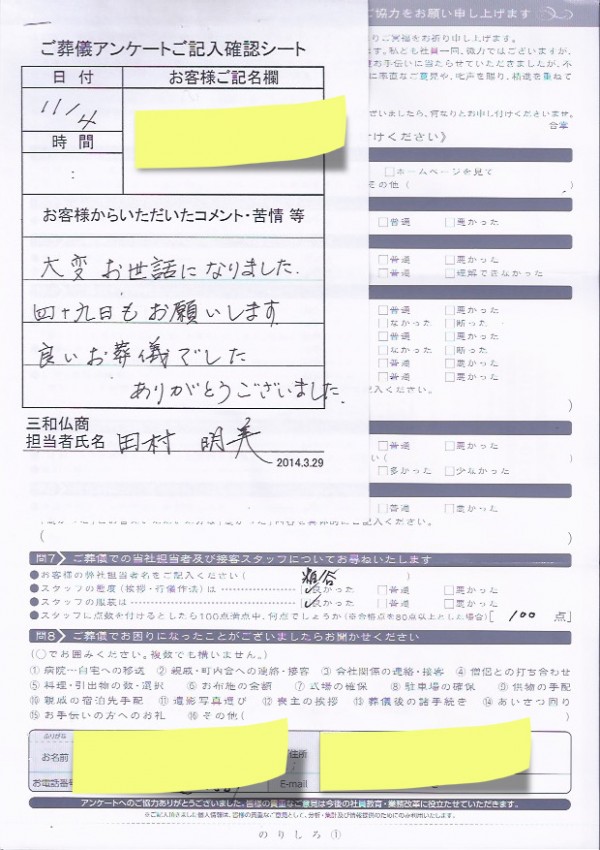 ご協力をお願い申し上げます
ご葬儀アンケートご記入確認シート
日付
お客様ご記名欄
11/4
時間
:
お客様からいただいたコメント・苦情 等
大変お世話になりました.
四十九日もお願いします
良いお葬儀でした
ありがとうございました.
三和仏商
担当者氏名 田村 明美
2014.3.29
合掌
けください》
□ホームページを見て
その他(
□普通 □悪かった
□普通 □悪かった
□普通 □理解できなかった
□普通 □悪かった
□なかった □断った
□普通 □悪かった
□なかった □断った
□普通 □悪かった
□普通 □悪かった
□普通 □悪かった
□多かった □少なかった
□普通 □悪かった
問7 ご葬儀での当社担当者及び接客スタッフについてお尋ねいたします
●お客様の弊社担当者名をご記入ください(
●スタッフの態度(挨拶・行儀作法)は 良かった □普通 □悪かった
●スタッフの服装は 良かった □普通 □悪かった
●スタッフに点数を付けるとしたら100点満点中、何点でしょうか(※合格点を80点以上とした場合)[ 100 点]
問8 ご葬儀でお困りになったことがございましたらお聞かせください
(○でお囲みください。複数でも構いません。)
①病院…自宅への移送 ②親戚・町内会への連絡・接客 ③会社関係の連絡・接客 ④僧侶との打ち合わせ
⑤料理・引出物の数・選択 ⑥お布施の金額 ⑦式場の確保 ⑧駐車場の確保 ⑨供物の手配
⑩親戚の宿泊先手配 ⑪遺影写真選び ⑫喪主の挨拶 ⑬葬儀後の諸手続き ⑭あいさつ回り
⑮お手伝いの方へのお礼 ⑯その他( )
ふりがな
お名前
ご住所
お電話番号
E-mail
アンケートへのご協力ありがとうございました。皆様の貴重なご意見は今後の社員教育・業務改革に役立たせていただきます。
※ご記入頂きました個人情報は、皆様の貴重なご意見として、分析・集計及び情報提供のためにのみ利用いたします。
のりしろ①